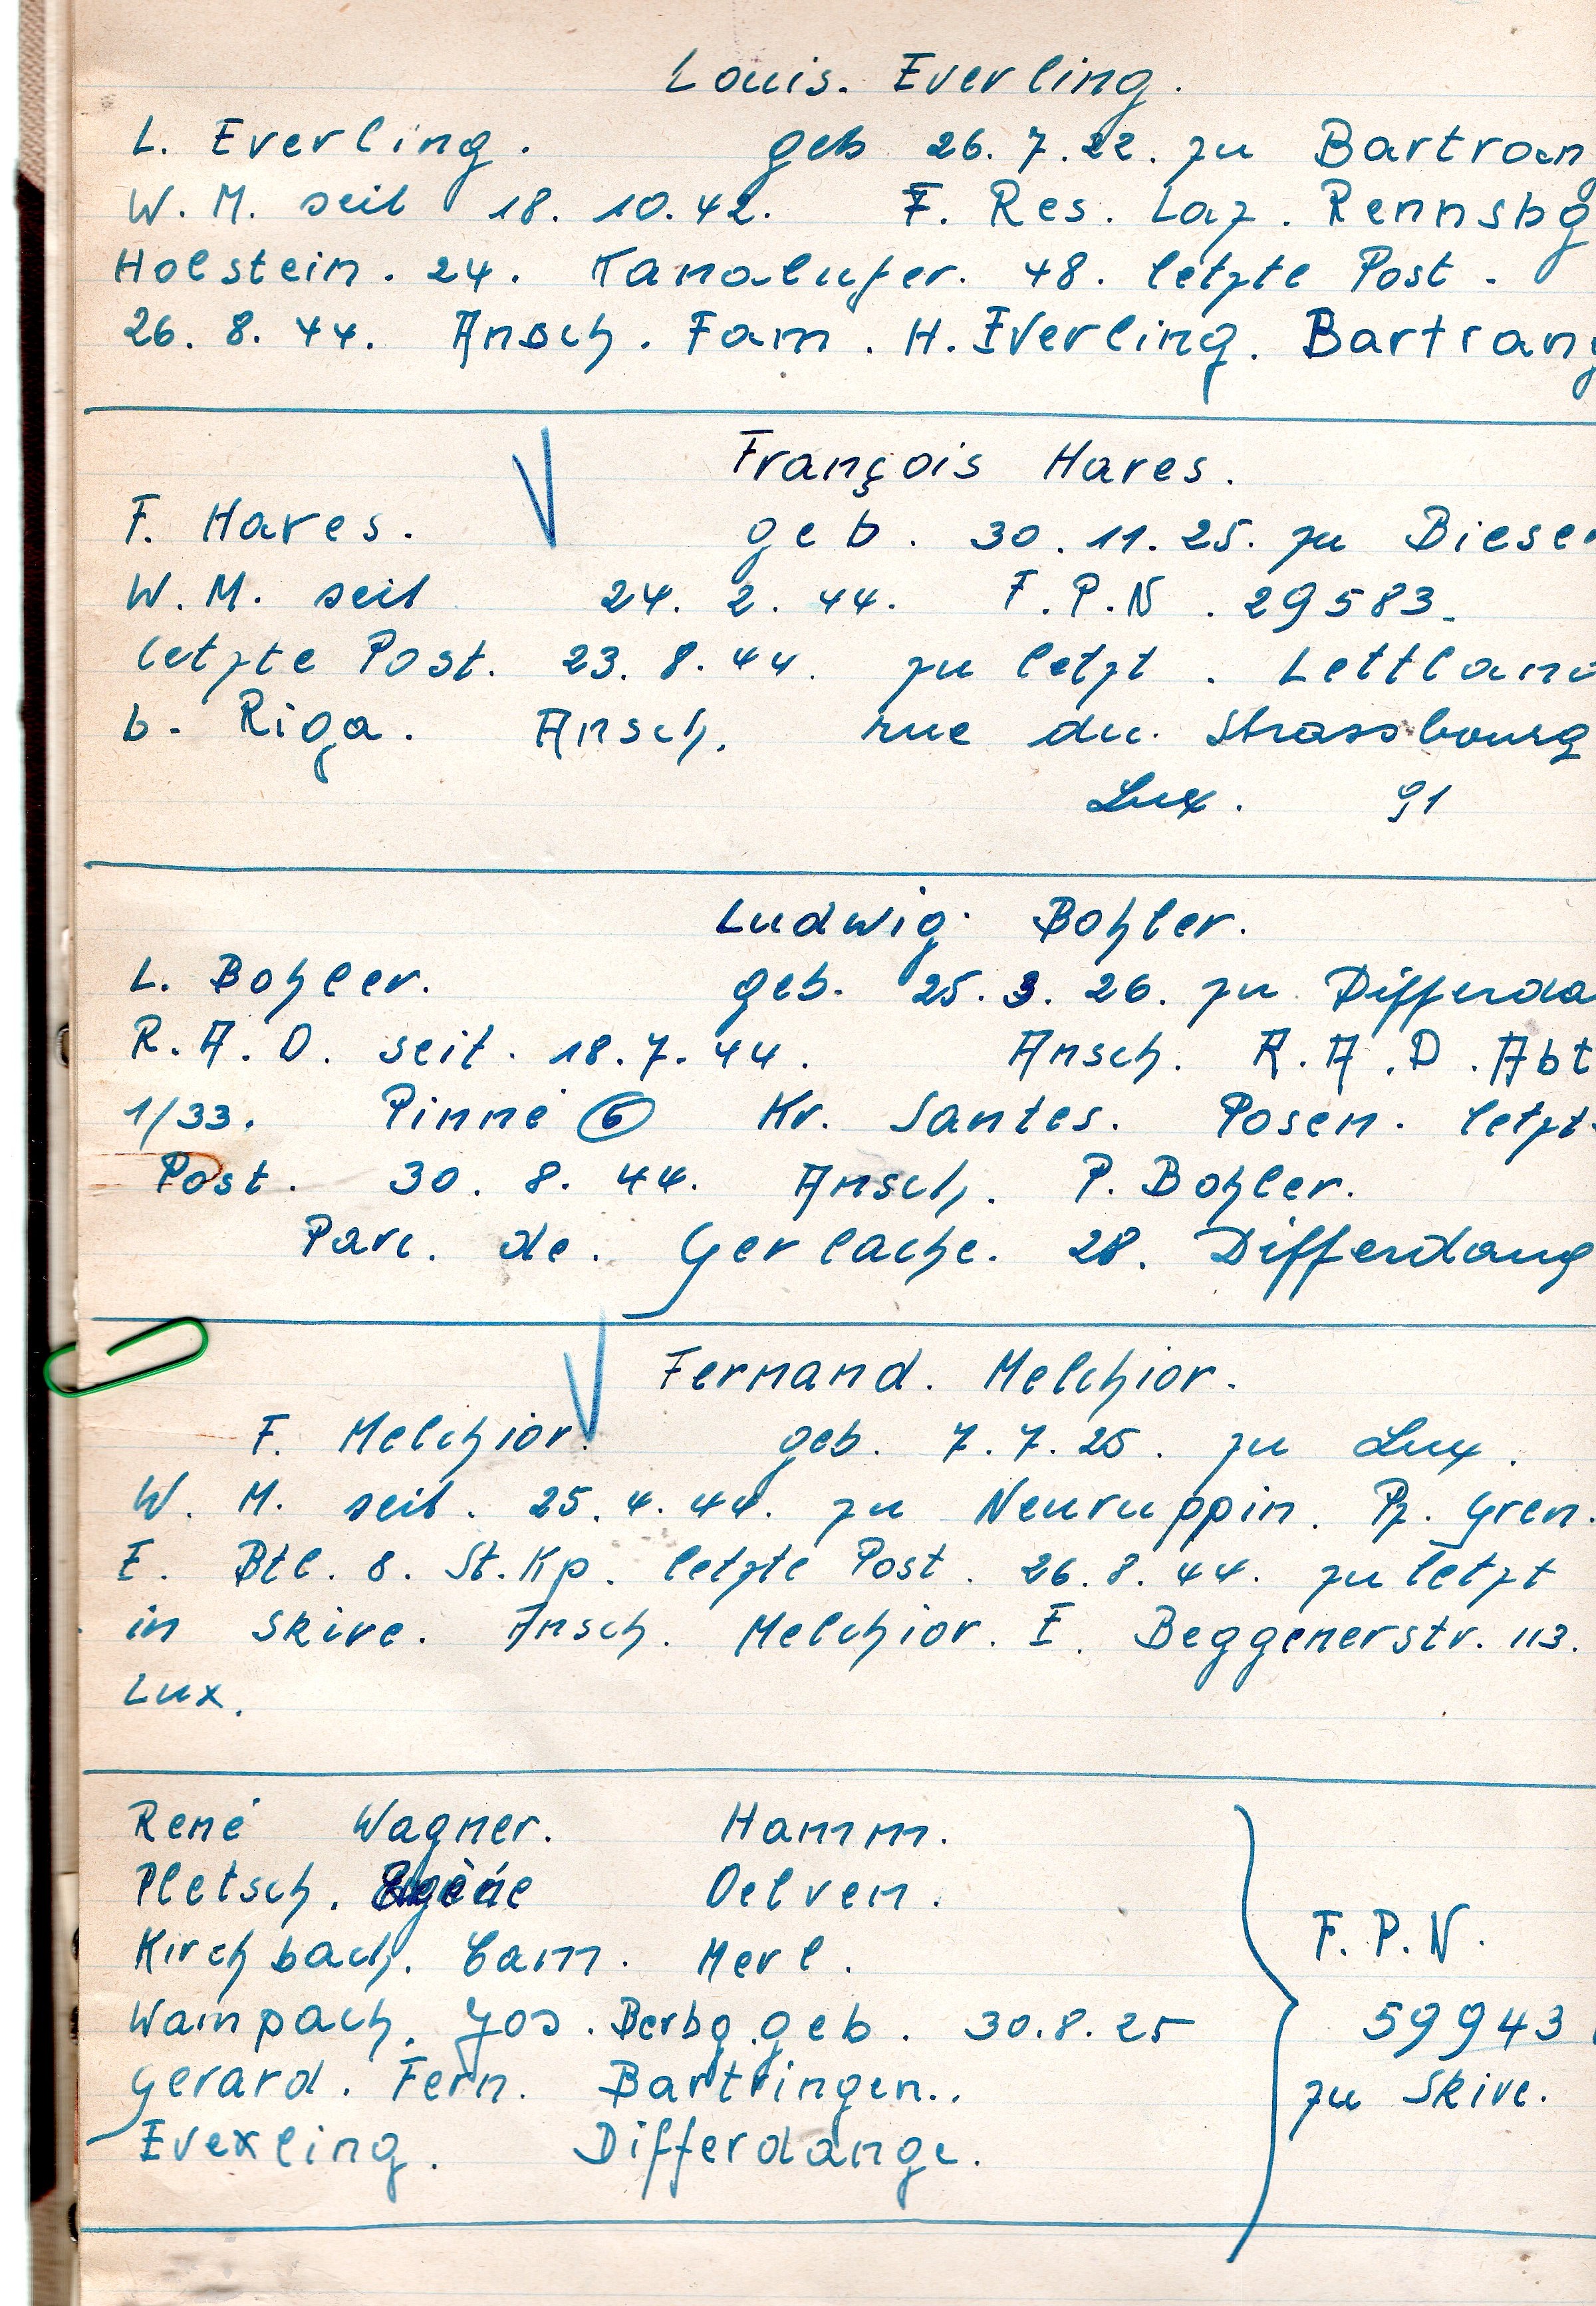 Louis. Everling.
L. Everling. geb 26.7.22. zu Bartran
W.M. seit 18.10.42. F. Res. Laz. Rennsbg
Holstein. 24. Kanalufer. 48. letzte Post.
26.8.44. Ansch. Fam. H. Everling. Bartrang
François Hares.
F. Hares. geb. 30.11.25. zu Biese
W.M. seit 24.2.44. F.P.N. 29583.
letzte Post. 23.8.44. zu letzt. Lettland
b. Riga. Ansch. rue du. Strassbourg
Lux. 91
Ludwig Bohler.
L. Bohler. geb. 25.3.26. zu Differda
R.A.D. seit. 18.7.44. Ansch. R.A.D. Abt
1/33. Pinné 6 Kr. Santes. Posen. letzt
Post. 30.8.44. Ansch. P. Bohler.
Parc. de. Gerlache. 28. Differdang
Fernand. Melchior.
F. Melchior. geb. 7.7.25. zu Lux.
W.M. seit. 25.4.44. zu Neuruppin. Pz. Gren.
E. Btl. 8. St.Kp. letzte Post. 26.8.44. zu letzt
in Skive. Ansch. Melchior. E. Beggenerstr. 113.
Lux.
René Wagner. Hamm.
Pletsch. Oelven.
Kirchbach. Cam. Merl.
Wampach. Jos. Berbg. geb. 30.8.25
Gerard. Fern. Bartringen..
Evexling. Differdange.
F.P.N.
59943.
zu Skive.